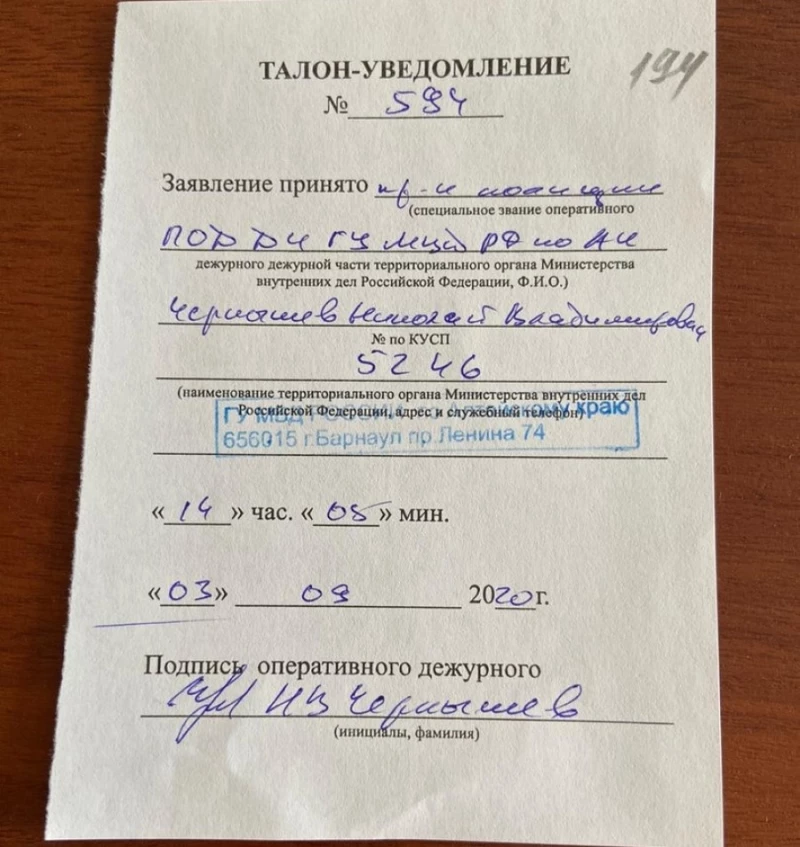 ТАЛОН-УВЕДОМЛЕНИЕ
194
№ 594
Заявление принято пр-к полиции
(специальное звание оперативного
ГУ МВД РФ по АК
дежурного дежурной части территориального органа Министерства
внутренних дел Российской Федерации, Ф.И.О.)
Чернышев Николай Владимирович
№ по КУСП
5246
(наименование территориального органа Министерства внутренних дел
Российской Федерации, адрес и служебный телефон)
ГУ МВД РОССИИ по Алтайскому краю
656015 г.Барнаул пр.Ленина 74
«14» час. «05» мин.
«03» 09 2020г.
Подпись оперативного дежурного
НВ Чернышев
(инициалы, фамилия)